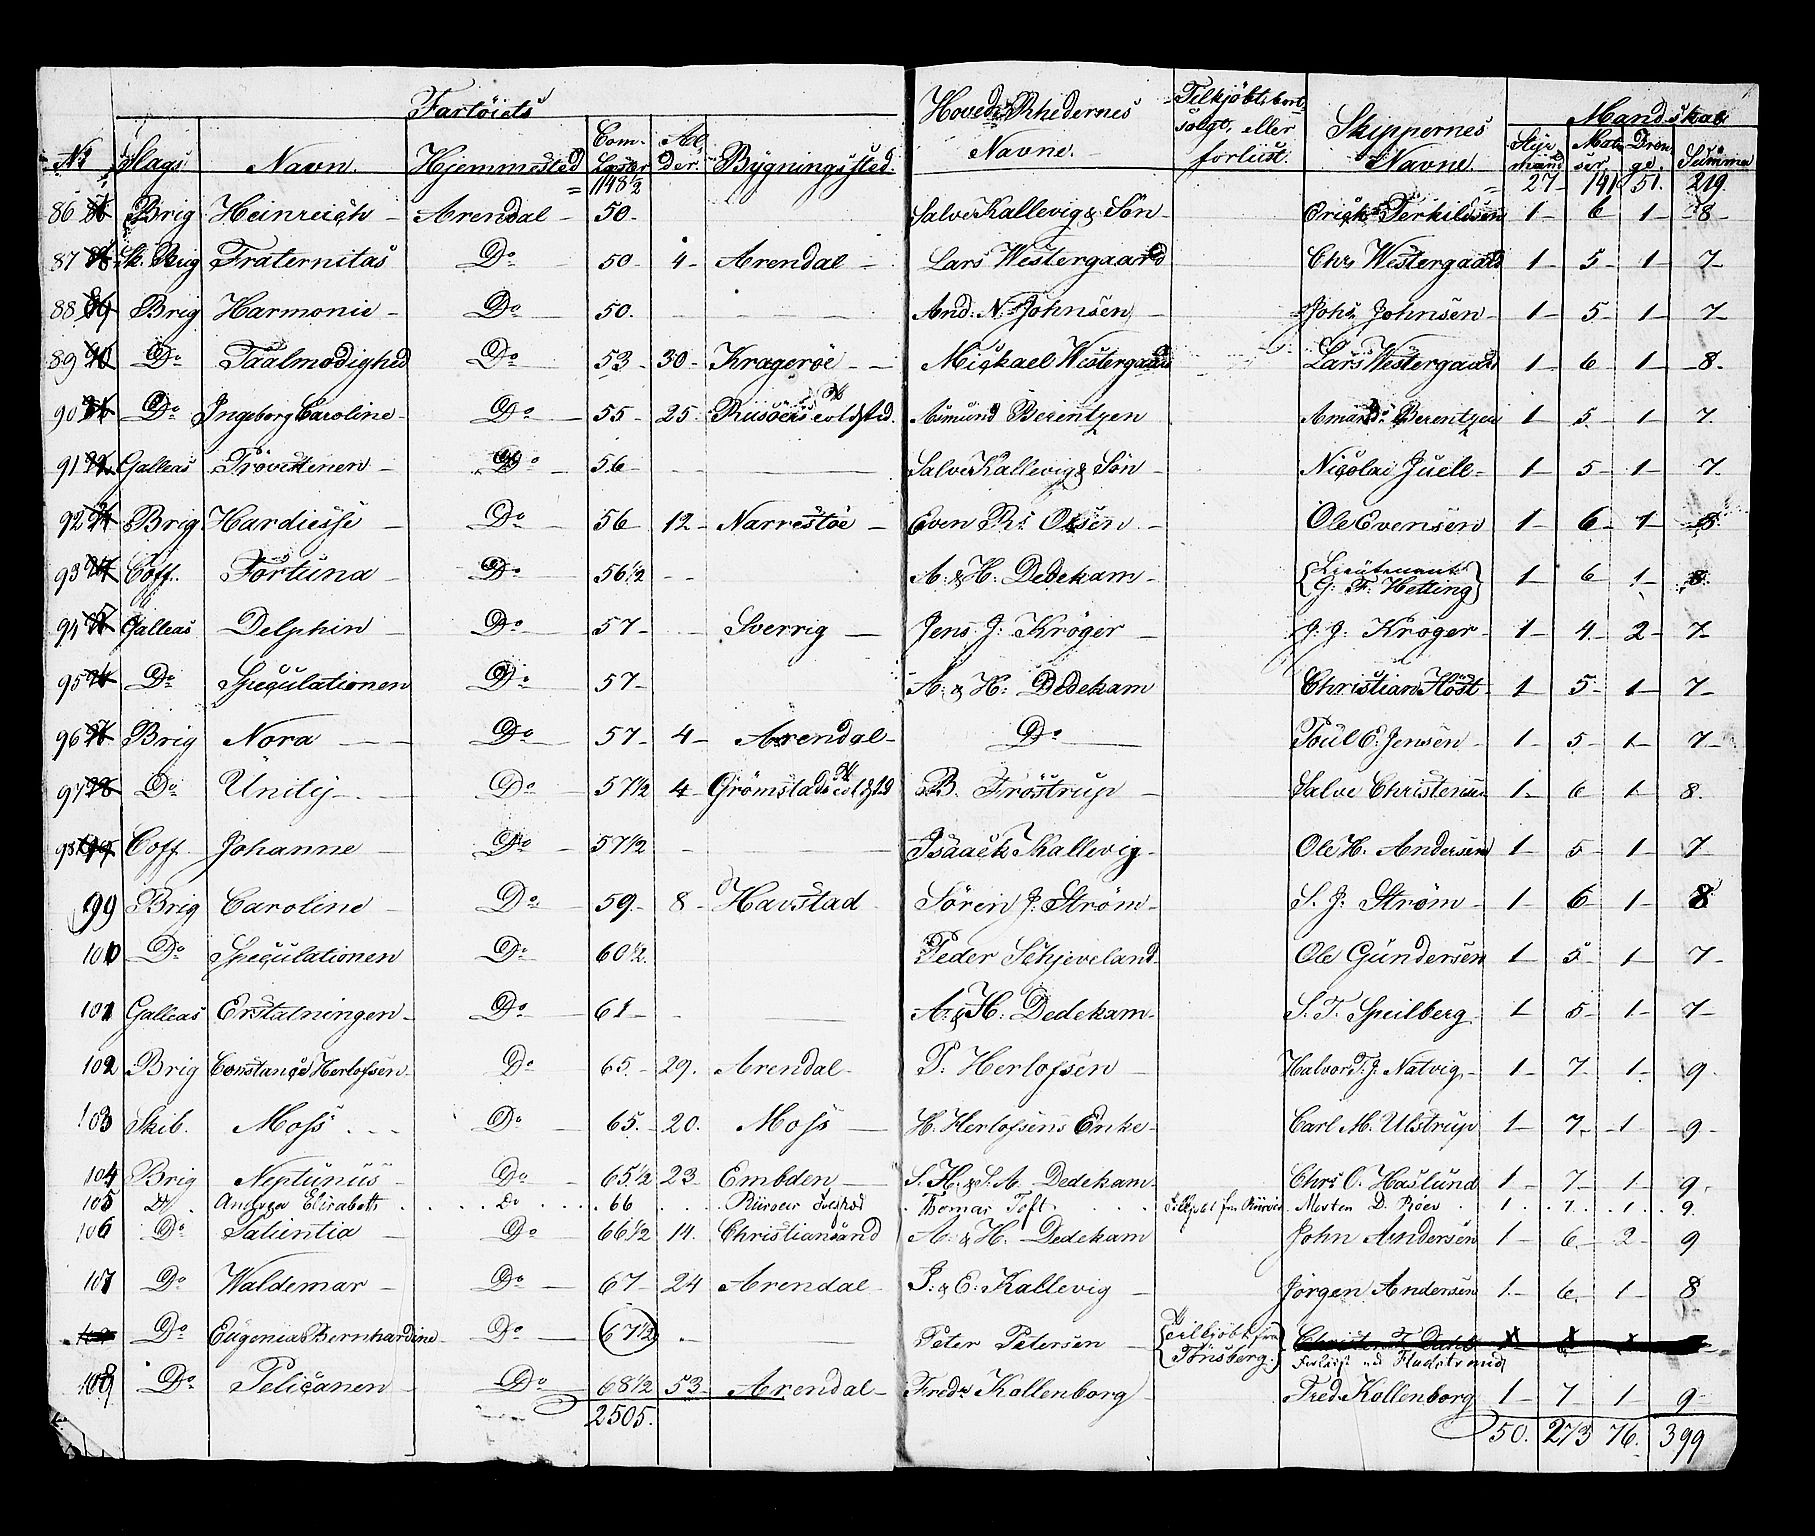 Fartöiets
Hoved Rhedernes Navne.
Tilkjöbt, bortsolgt, eller forliist.
Skippernes Navne.
Mandskab
No Slags Navn. Hjemmested Com. Laster Alder. Bygningssted. Styrmænd Matroser Drenge. Summa
1148 1/2 27 141 51. 219
86 Brig Heinreich Arendal 50. Salve Kallevig & Sön Erick Terkildsen 1 6 1 8
87 Sk. Brig Fraternitas Do 50 4 Arendal Lars Westergaard Chr. Westergaard 1 5 1 7
88 Brig Harmonie Do 50. And. N. Johnsen Johs Johnsen 1 5 1 7
89 Do Taalmodighed Do 53 30 Kragerøe Mickael Westergaard Lars Westergaard 1 6 1 8.
90 Do Ingeborg Caroline Do 55 25 Riisöers Tolldsted. Asmund Berentzen Berentzen 1 5 1 7.
91 Galleas Prövestenen Do 56 Salve Kallevig & Sön Nicolai Juell 1 5 1 7
92 Brig Hardiesse Do 56 12 Narrestöe Even R. Olsen Ole Evensen 1 6 1 8
93 Coff. Fortuna Do 56 1/2 A. & H. Dedekam {Lieutenant G. F. Hetting} 1 6 1 8.
94 Galleas Delphin Do 57 Sverrig Jens J. Kröger J. J. Kröger 1 4 2 7
95 Do Speculationen Do 57 A. & H. Dedekam Christian Höst 1 5 1 7
96 Brig Nora Do 57 4 Arendal Do Poül E. Jensen 1 5 1 7
97 Do Unity Do 57 1/2 4 Grömstads Tolldsted B. Tröstrup Salve Christensen 1 6 1 8.
98 Coff. Johanne Do 57 1/2 Isaack Kallevig Ole H. Andersen 1 5 1 7
99 Brig Caroline Do 59. 8 Havstad Sören J. Ström S. J. Ström 1 6 1 8
100 Do Speculationen Do 60 1/2. Peder Schjeveland Ole Gundersen 1 5 1 7
101 Galleas Erstatningen Do 61 A. & H. Dedekam S. T. Speilberg 1 5 1 7
102 Brig Constance Herlofsen Do 65. 29. Arendal P. Herlofsen Halvor T. J. Natvig 1 7 1 9
103 Skib. Moss Do 65. 20. Moss H. Herlofsens Enke Carl M. Ulstrup 1 7 1 9
104 Brig Neptunus Do 65 1/2 23 Embden S. H. & S. A. Dedekam Chrs O. Haslund 1 7 1 9
105 Do Andrea Elisabeth Do 66 Riisöer Tolldsted Thomas Toft Tilkjöbt fra Riisöer Morten D. Röev 1 7 1 9
106 Do Salentia Do 66 1/2 14. Christiansand A. & H. Dedekam John Andersen 1 6 2 9
107 Do Waldemar Do 67 24 Arendal J. & E. Kallevig Jörgen Andersen 1 6 1 8
Do Eugenia Bernhardine Do 67 1/2 Peter Petersen {tilkjöbt fra Tönsberg.} Christen T. Dahl
Forliist ved Fladstrand
108 Do Pelicanen Do 68 1/2 53 Arendal Fredr Kallenborg Fredr Kallenborg 1 7 1 9
2505. 50. 273 76. 399